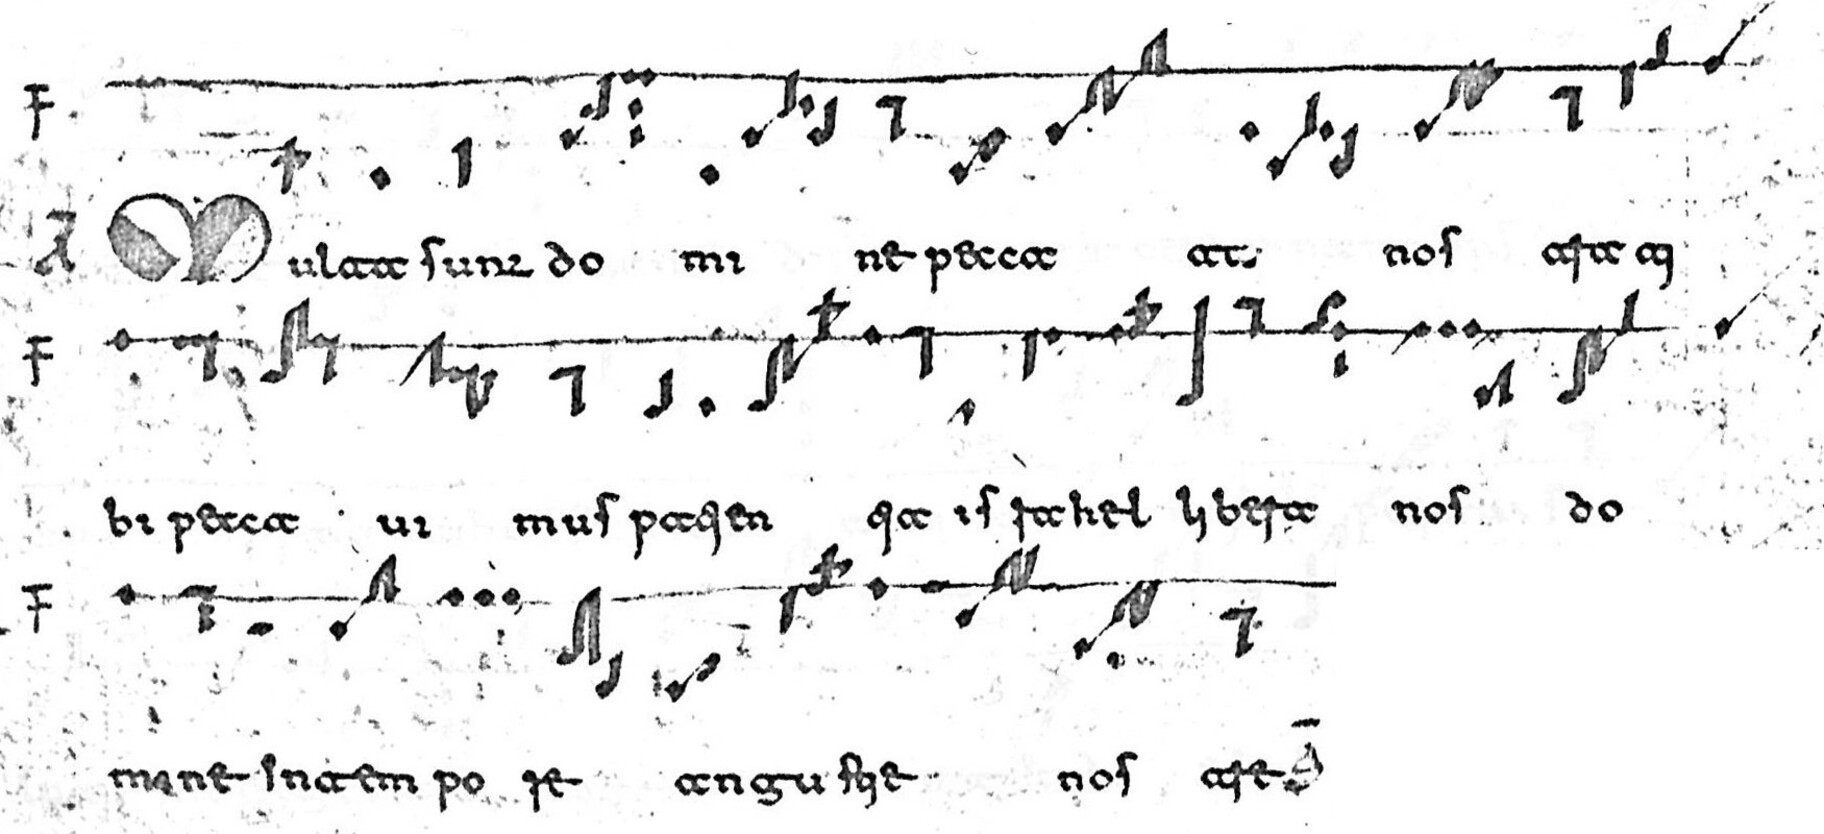 F
A Multa sunt do mi ne pecca ta. nos tra ti
F
bi pecca ui mus patien tia is rahel libera nos do
F
mine intem po re angu stie nos tre